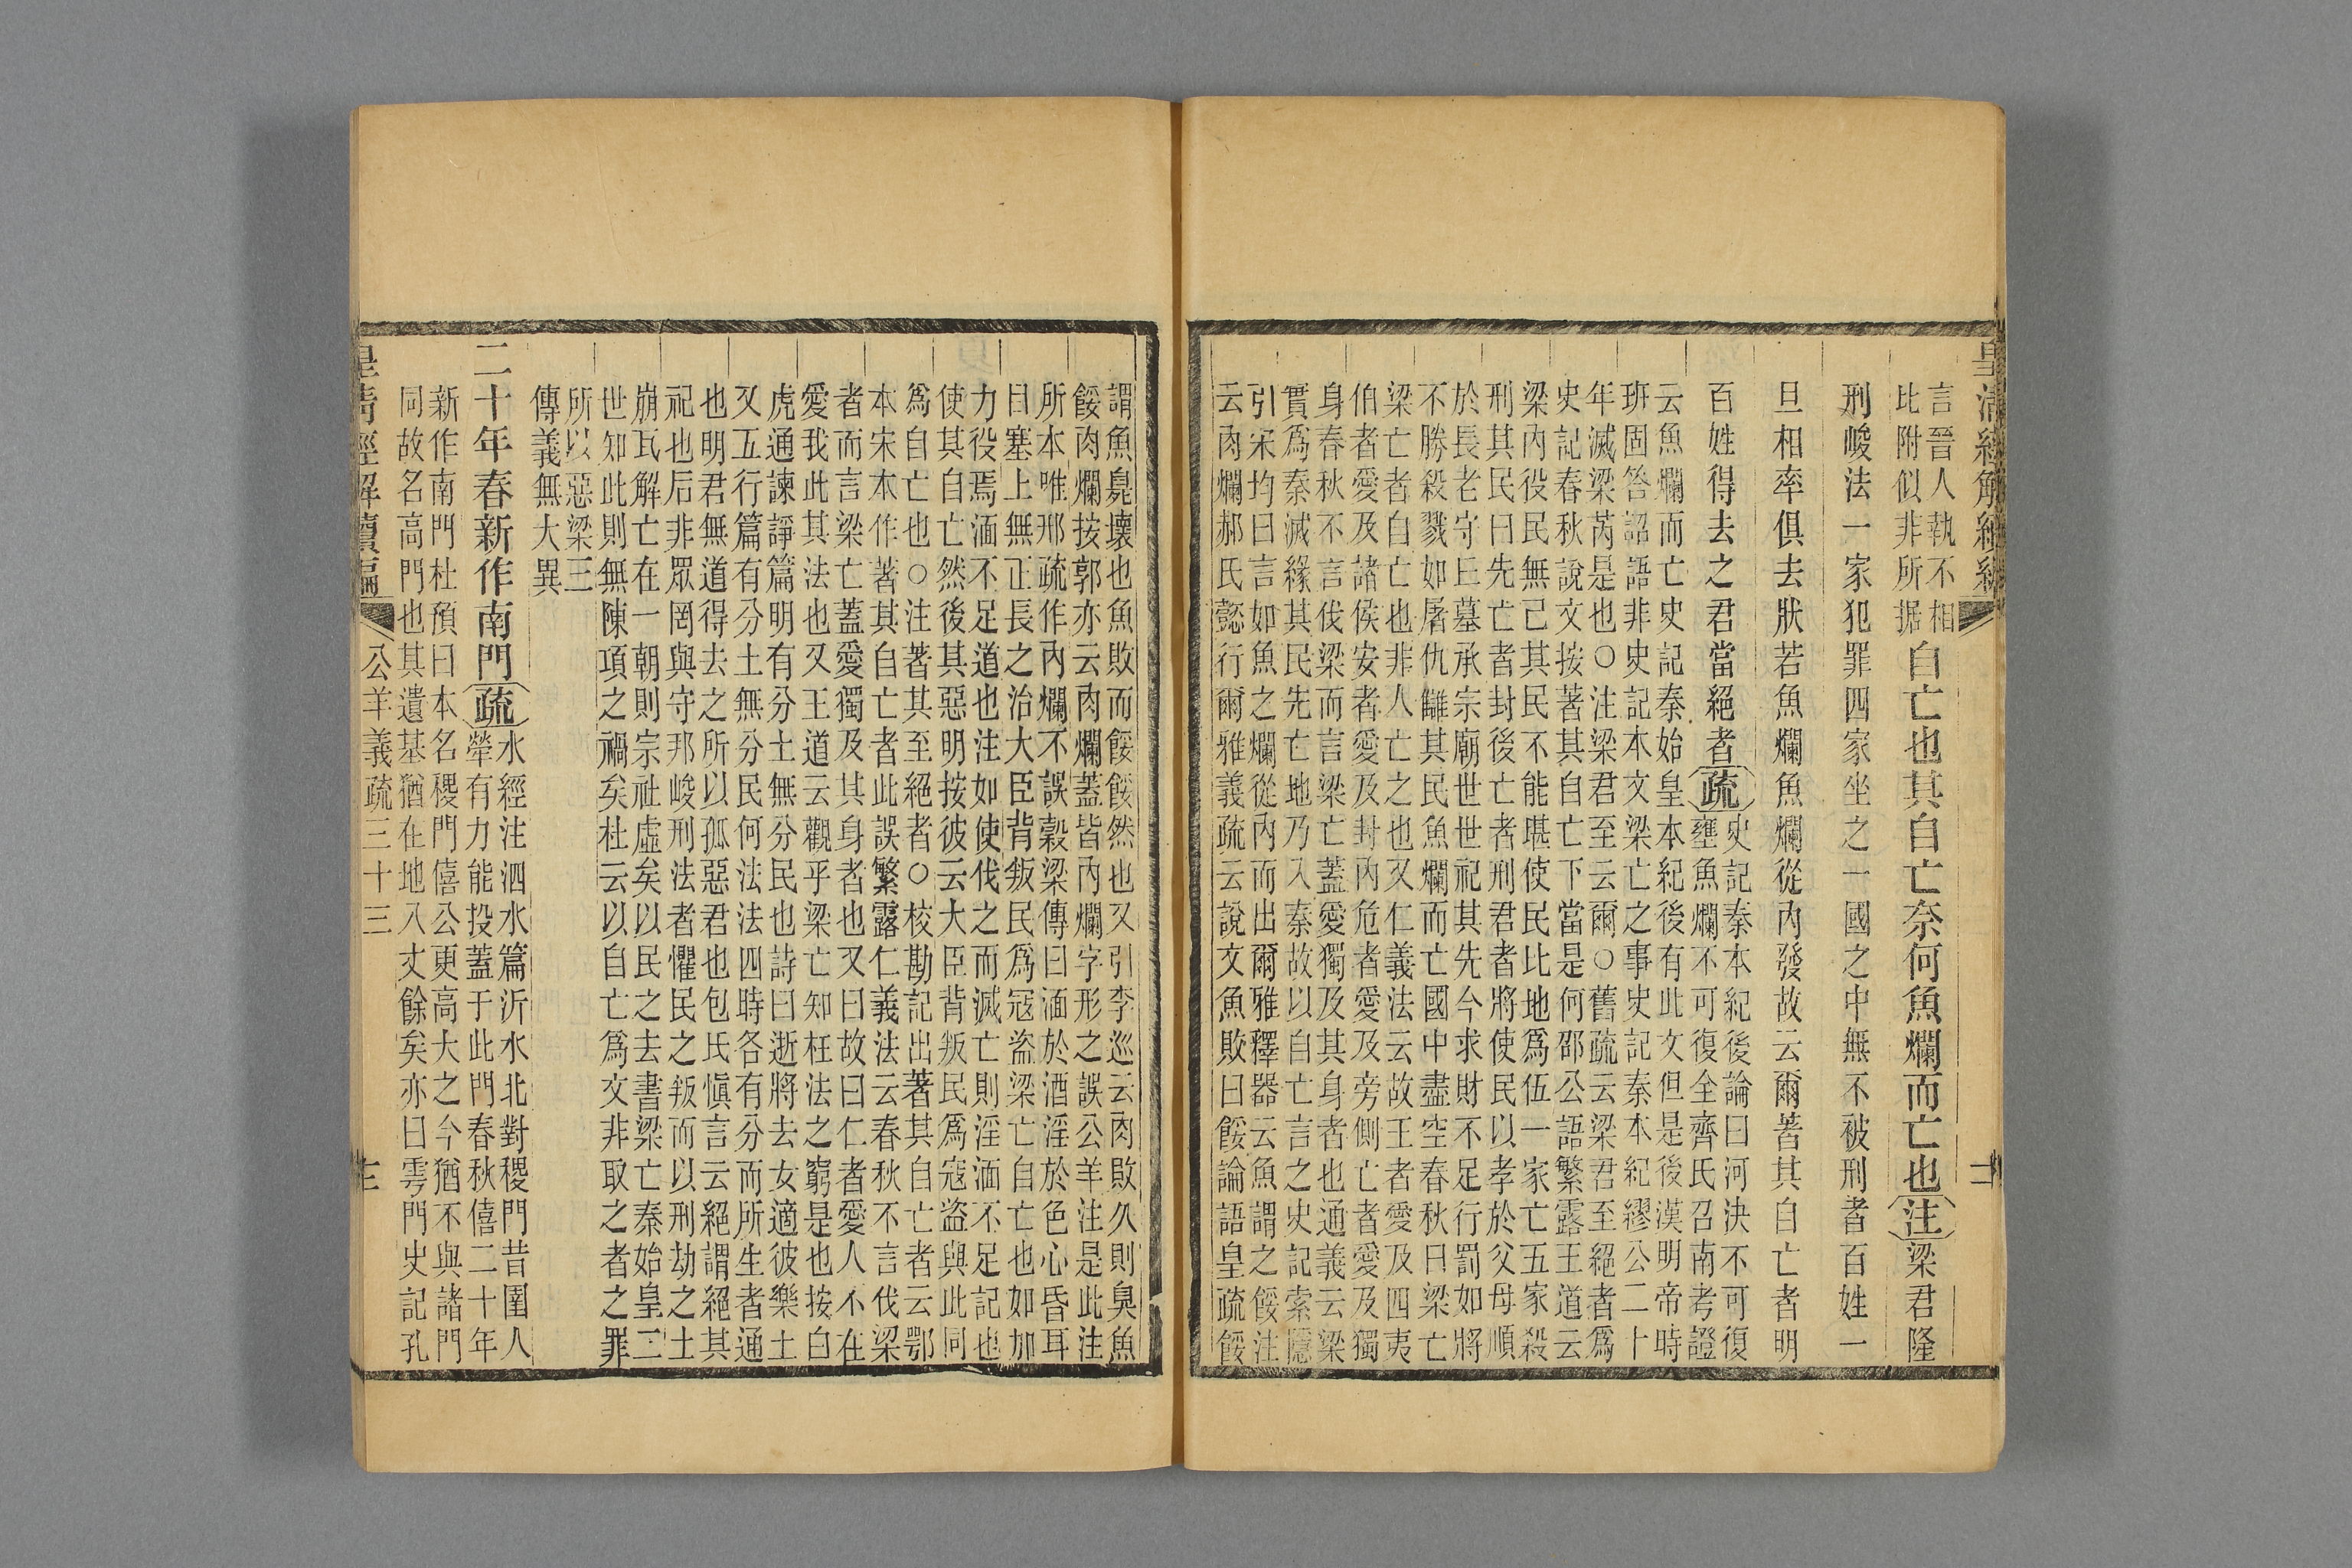 言晉人執不相
比附似非所据
自亡也其自亡奈何魚爛而亡也注梁君隆
刑峻法一家犯罪四家坐之一國之中無不被刑者百姓一
旦相率俱去狀若魚爛魚爛從內發故云爾著其自亡者明
百姓得去之君當絕者疏
史記秦本紀後論曰河決不可復
壅魚爛不可復全齊氏召南考證
云魚爛而亡史記秦始皇本紀後有此文但是後漢明帝時
班固答詔語非史記本文梁亡之事史記秦本紀繆公二十
年滅梁芮是也○注梁君至云爾○舊疏云梁君至絕者爲
史記春秋說文按著其自亡下當是何邵公語繁露王道云
梁內役民無已其民不能堪使民比地爲伍一家亡五家殺
刑其民曰先亡者封後亡者刑君者將使民以孝於父母順
於長老守丘墓承宗廟世世祀其先今求財不足行罰如將
不勝殺戮如屠仇讎其民魚爛而亡國中盡空春秋曰梁亡
梁亡者自亡也非人亡之也又仁義法云故王者愛及四夷
伯者愛及諸侯安者愛及封內危者愛及旁側亡者愛及獨
身春秋不言伐梁而言梁亡蓋愛獨及其身者也通義云梁
實爲秦滅緣其民先亡地乃入秦故以自亡言之史記索隱
引宋均曰言如魚之爛從內而出爾雅釋器云魚謂之餒注
云肉爛郝氏懿行爾雅義疏云說文魚敗曰餒論語皇疏餒
謂魚臭壞也魚敗而餒餒然也又引李巡云肉敗久則臭魚
餒肉爛按郭亦云肉爛蓋皆內爛字形之誤公羊注是此注
所本唯邢疏作內爛不誤穀梁傳曰湎於酒淫於色心昏耳
目塞上無正長之治大臣背叛民爲寇盜梁亡自亡也如加
力役焉湎不足道也注如使伐之而滅亡則淫湎不足記也
使其自亡然後其惡明按彼云大臣背叛民爲寇盜與此同
爲自亡也○注著其至絕者○校勘記出著其自亡者云鄂
本宋本作著其自亡者此誤繁露仁義法云春秋不言伐梁
者而言梁亡蓋愛獨及其身者也又曰故曰仁者愛人不在
愛我此其法也又王道云觀乎梁亡知枉法之窮是也按白
虎通諫諍篇明有分土無分民也詩曰逝將去女適彼樂土
又五行篇有分土無分民何法法四時各有分而所生者通
也明君無道得去之所以孤惡君也包氏愼言云絕謂絕其
祀也后非眾罔與守邦峻刑法者懼民之叛而以刑劫之土
崩瓦解亡在一朝則宗社虛矣以民之去書梁亡秦始皇三
世知此則無陳項之禍矣杜云以自亡爲文非取之者之罪
所以惡梁三
傳義無大異
二十年春新作南門疏
水經注泗水篇沂水北對稷門昔圉人
犖有力能投蓋于此門春秋僖二十年
新作南門杜預曰本名稷門僖公更高大之今猶不與諸門
同故名高門也其遺基猶在地八丈餘矣亦曰雩門史記孔
皇清經解續編
公羊義疏三十三